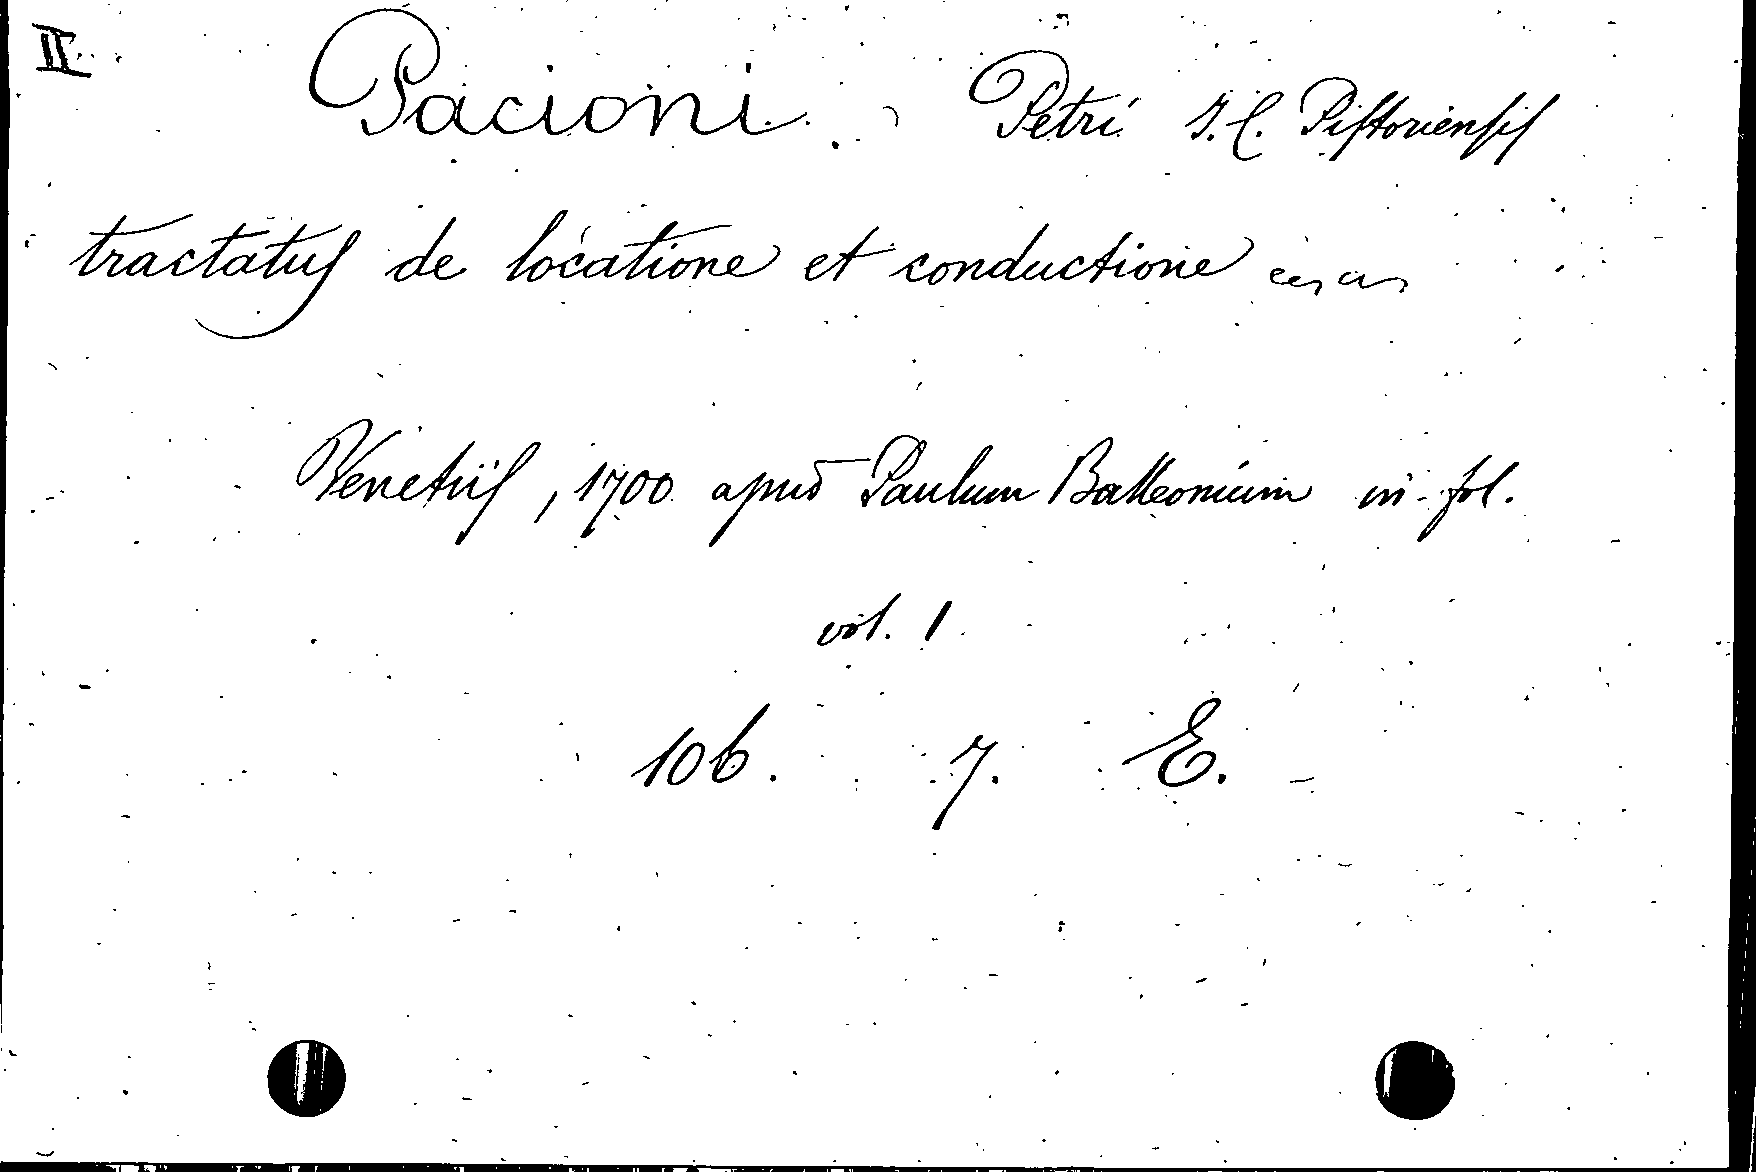 II
Pacioni, Petri I. C. Pistoriensis
tractatus de locatione et conductione
Venetiis, 1700 apud Paulum Balleonium in-fol.
vol. 1
106. 7. E.